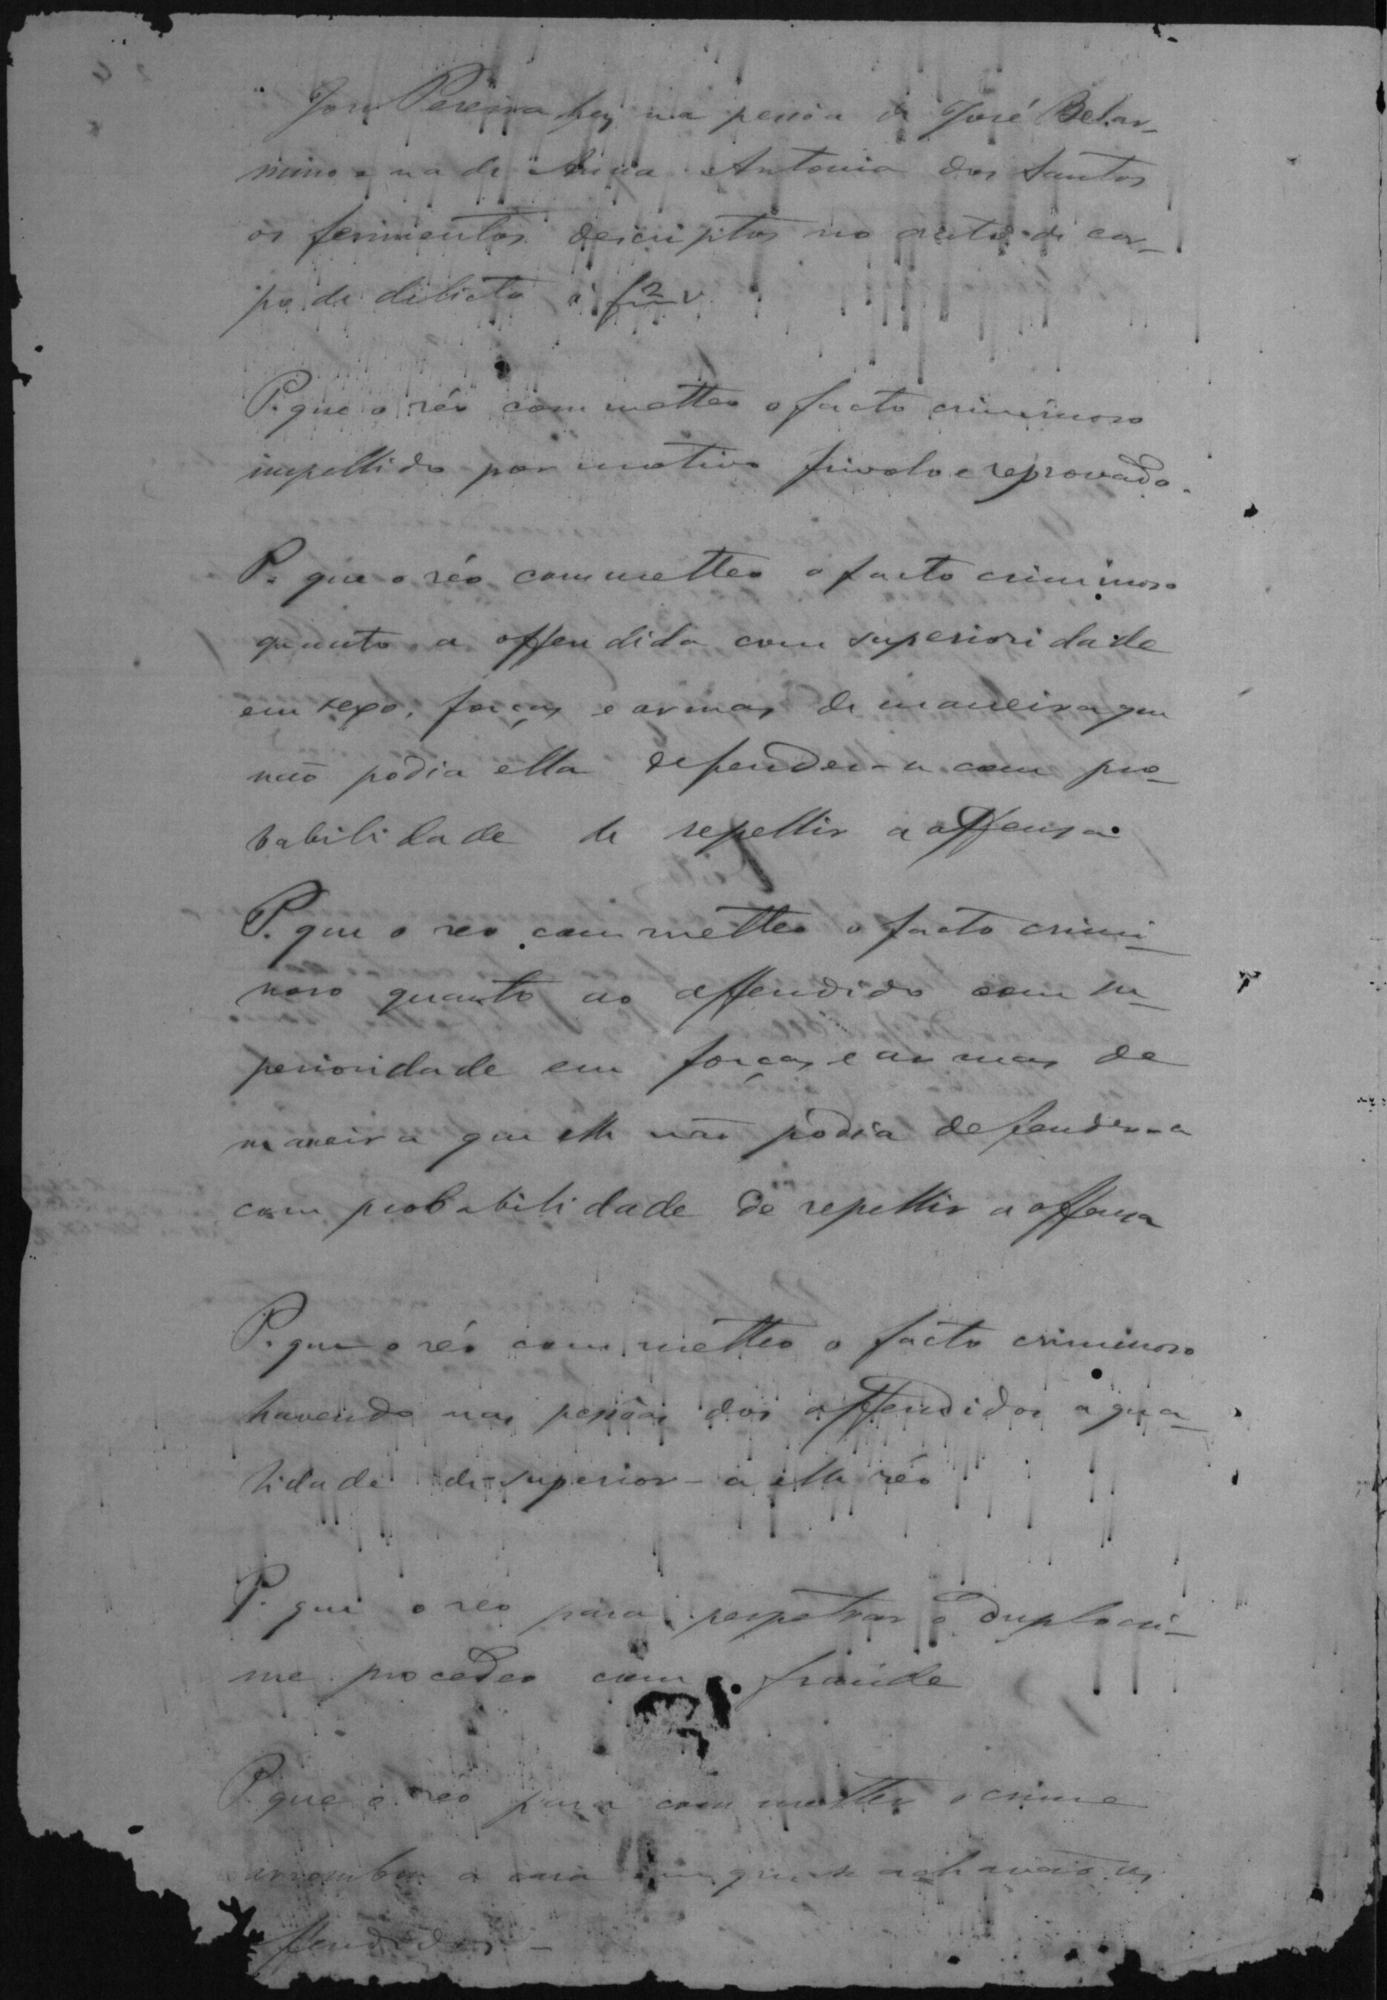 José Pereira fez na pessoa de José Belar-
mino e na de Anna Antonia dos Santos
os ferimentos descriptos no auto de cor-
po de delicto à f 2 v
P. que o réo commetteo o facto criminoso
impellido por motivo frivolo e reprovado.
P. que o réo commetteo o facto criminoso
quanto a offendida com superioridade
em sexo, forças e armas de maneira que
não podia ella defender-se com pro-
babilidade de repellir a offensa.
P. que o reo commetteo o facto crimi-
noso quanto ao offendido com su-
perioridade em forças e armas de
maneira que elle não podia defender-se
com probabilidade de repellir a offensa
P. que o réo commetteo o facto criminoso
havendo nas pessôas dos offendidos a qua-
lidade de superior a elle réo
P. que o reo para perpetrar o duplo cri-
me procedeo com fraude
P. que o réo para commetter o crime
arrombou a casa em que se achavão os
offendidos-